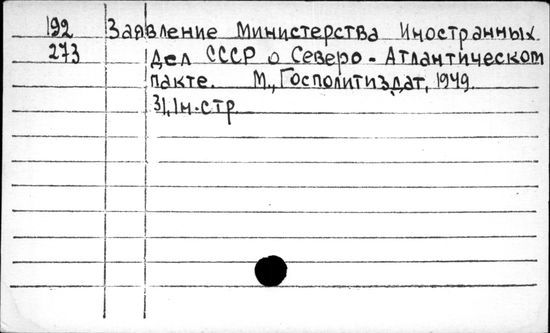 192 Заявление Министерства Иностранных
273 Дел СССР о Северо-Атлантическом
пакте. М., Госполитиздат, 1949.
31, 1н. стр.